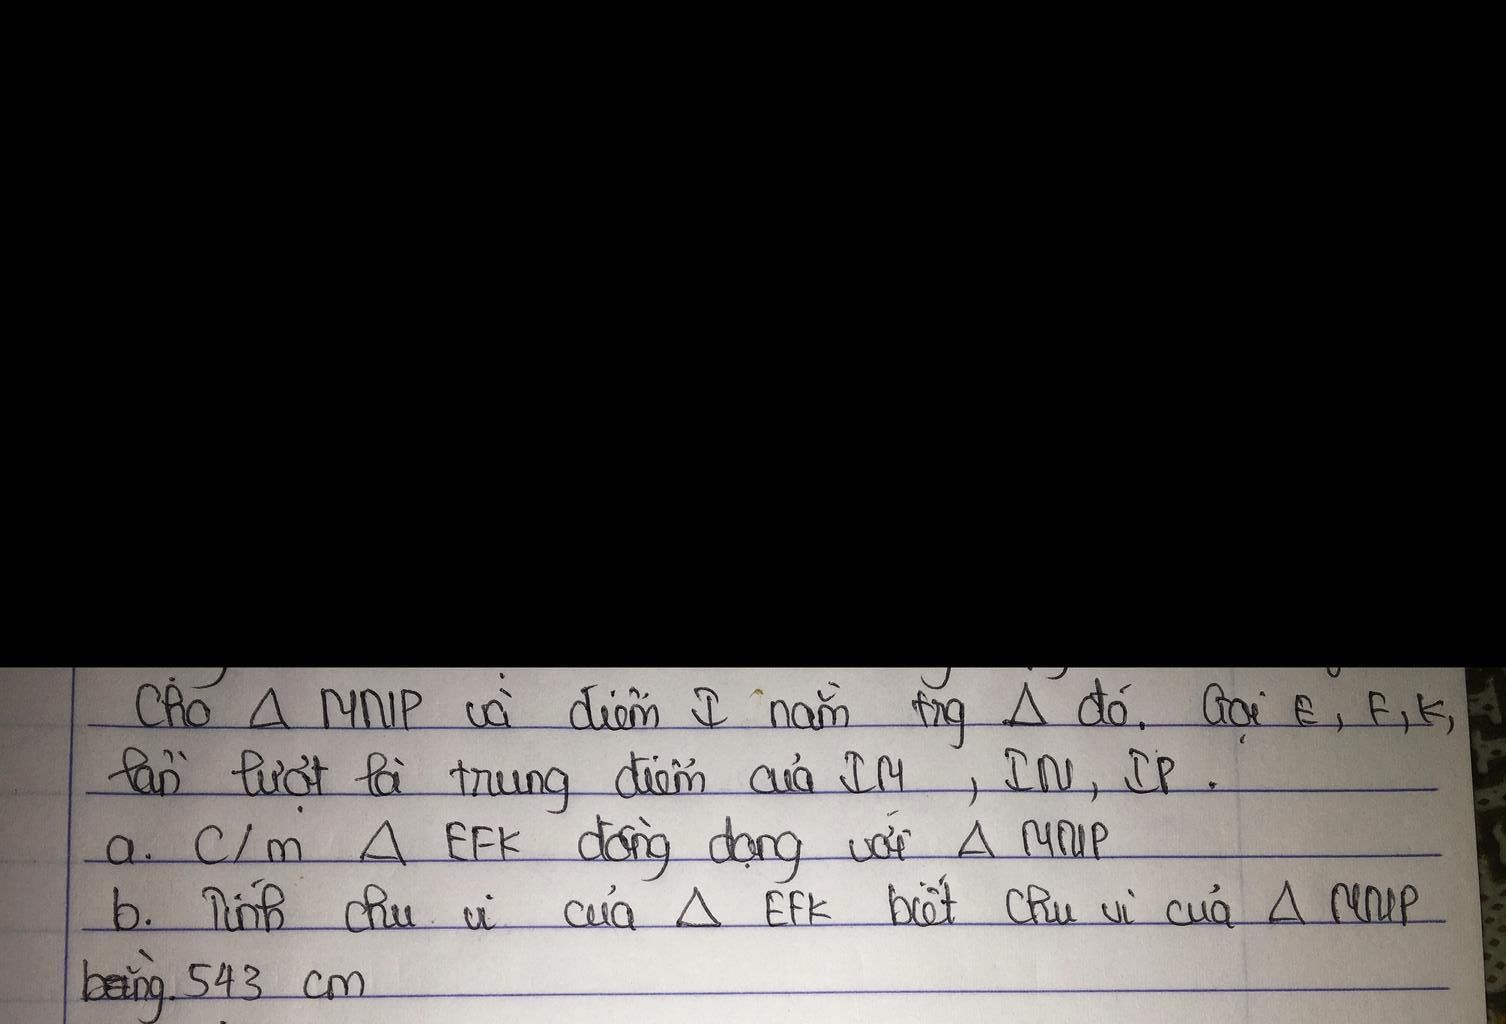 Cho Δ MNP và điểm I nằm trg Δ đó. Gọi E, F, K,
lần lượt là trung điểm của IM, IN, IP.
a. C/m Δ EFK đồng dạng với Δ MNP
b. Tính chu vi của Δ EFK biết chu vi của Δ MNP
bằng. 543 cm